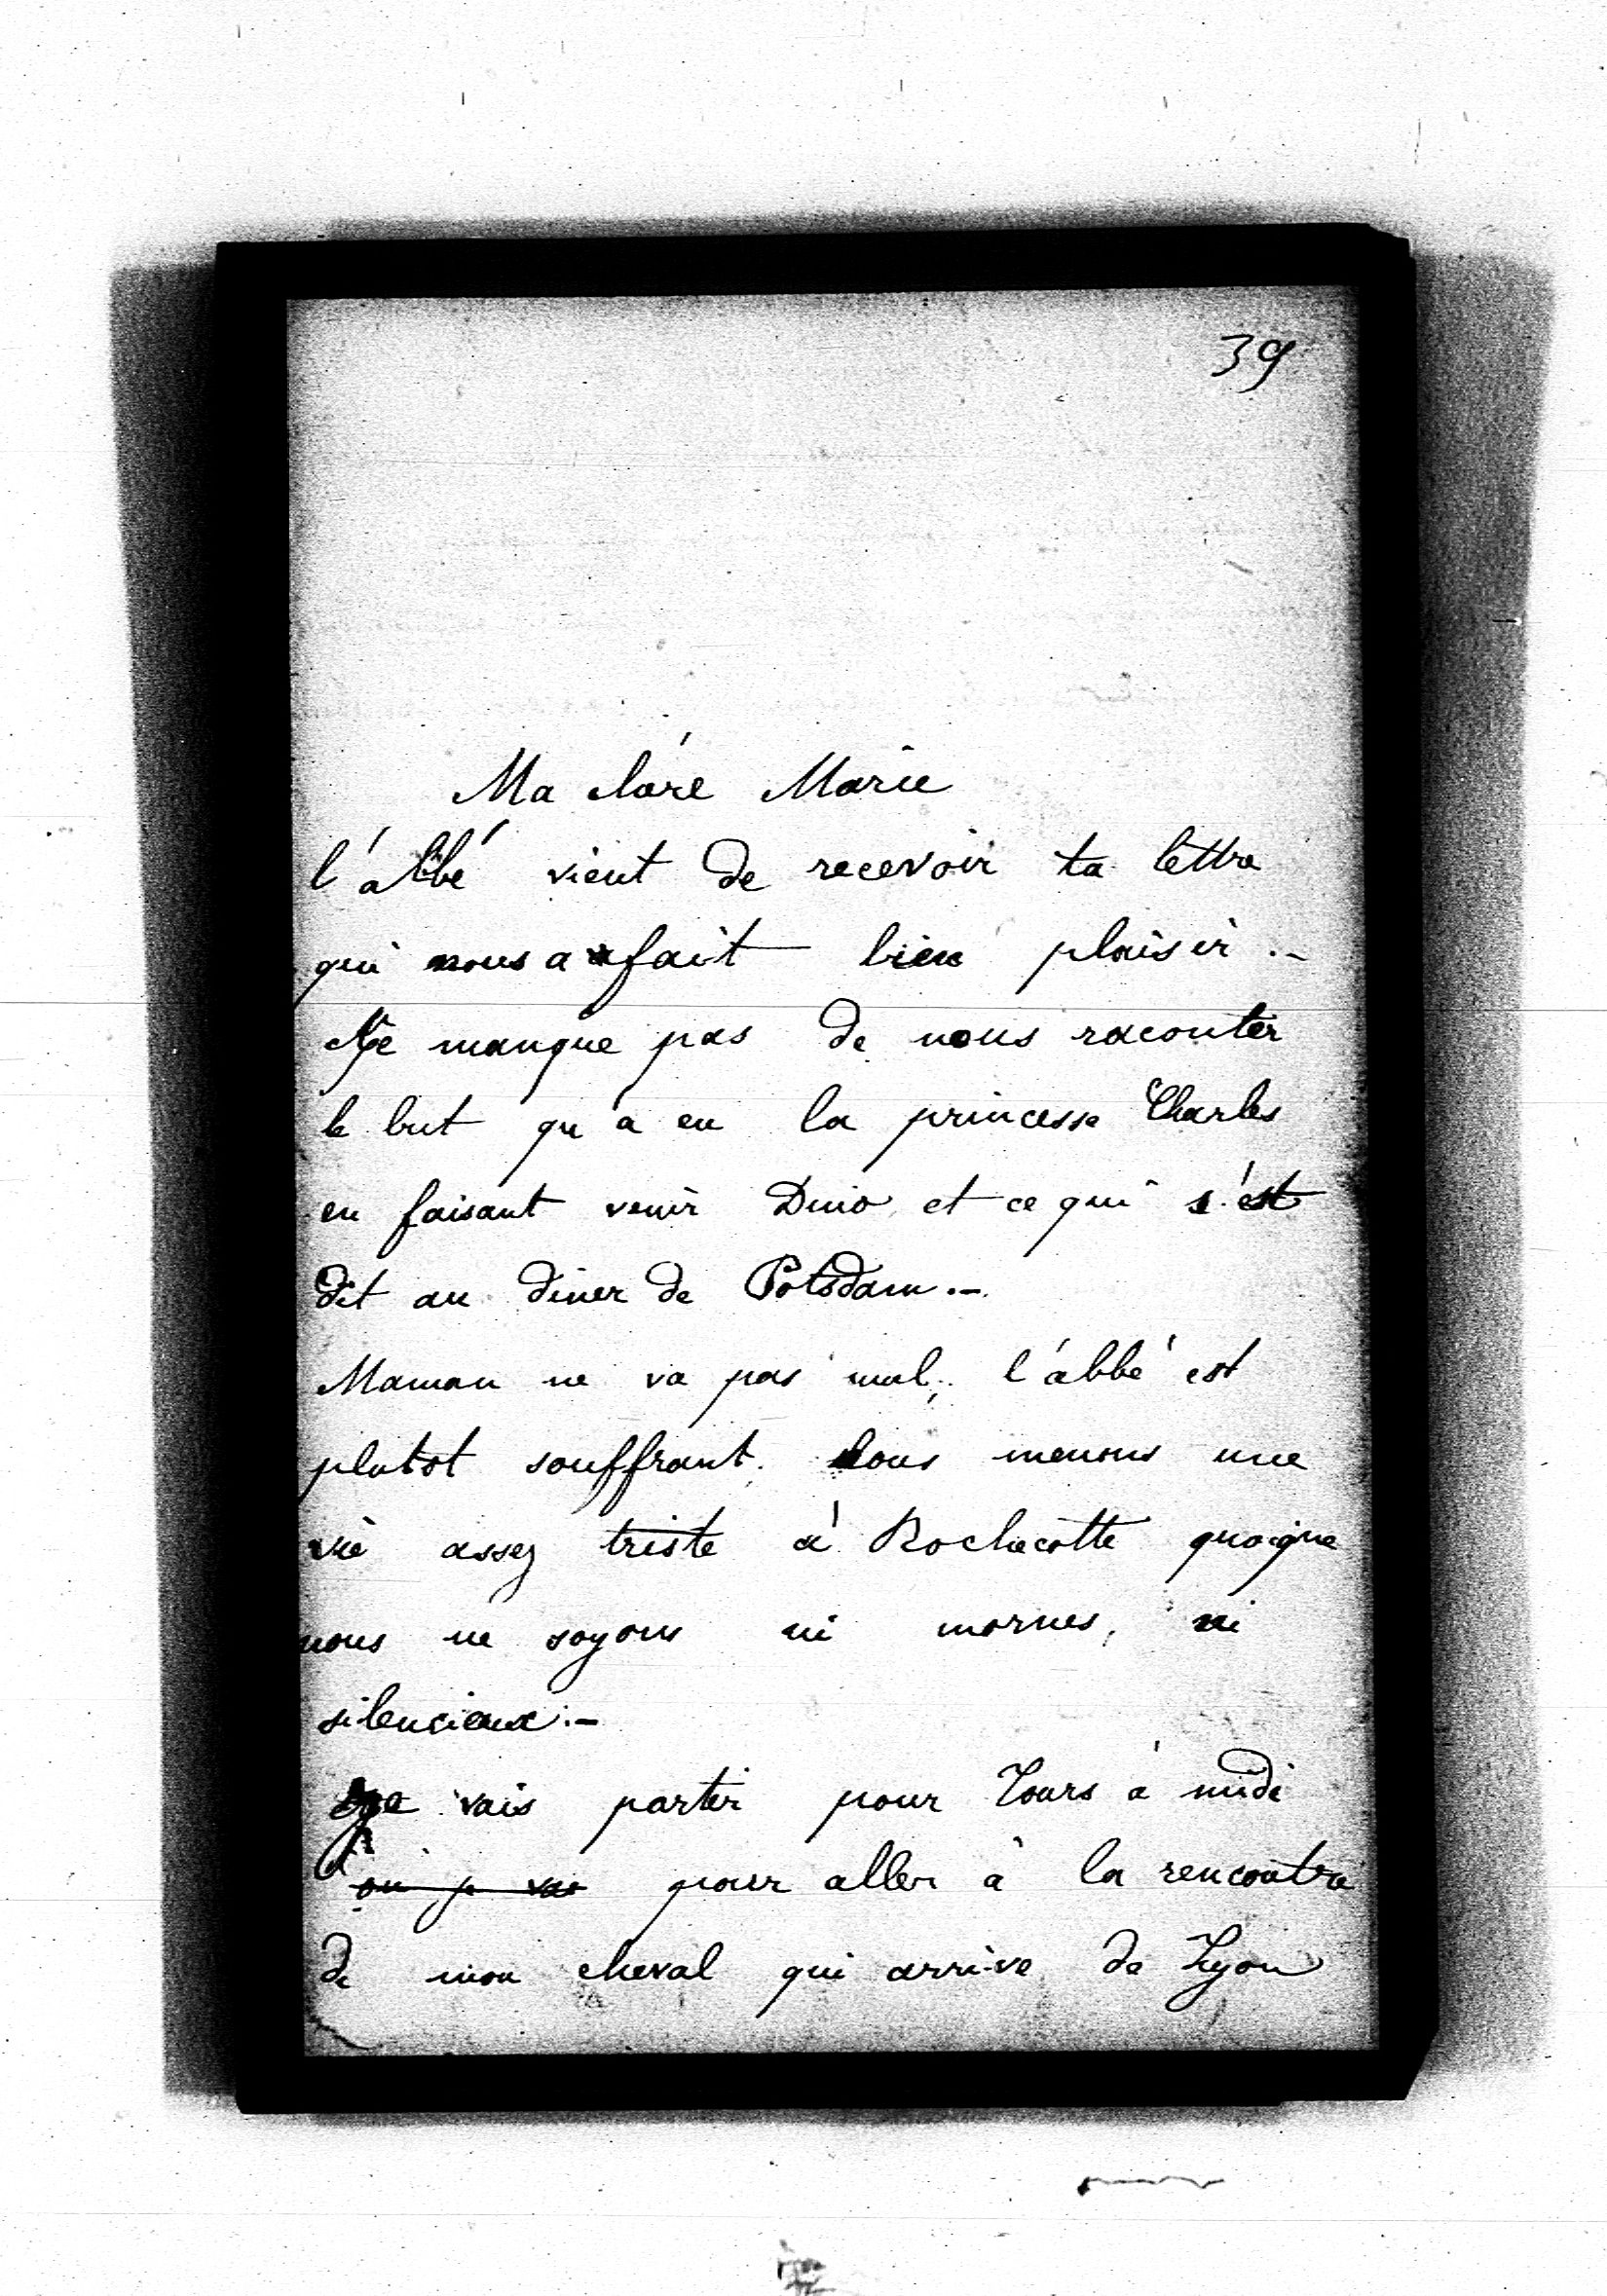 39
Ma chère Marie
l'abbé vient de recevoir ta lettre
qui nous a fait bien plaisir.-
Ne manque pas de nous raconter
le but qu'a eu la princesse Charles
en faisant venir Dino, et ce qui s'est
dit au diner de Potsdam.-
Maman ne va pas mal; l'abbé est
plutot souffrant. Nous menons une
vie assez triste à Rochecotte quoique
nous ne soyons ni mornes, ni
silencieux.-
Je vais partir pour Tours à midi
ou je vais pour aller à la rencontre
de mon cheval qui arrive de Lyon